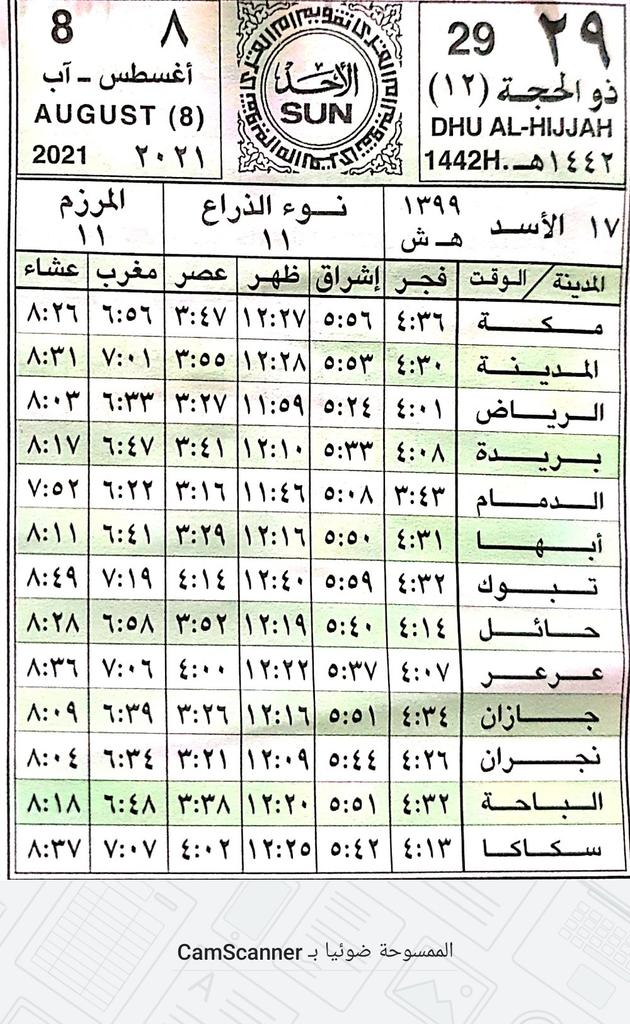 ٢٩ 29
ذو الحجة (١٢)
DHU AL-HIJJAH
1442H. ١٤٤٢هـ
الأحد
SUN
٨ 8
أغسطس - آب
AUGUST (8)
2021 ٢٠٢١
١٧ الأسد ١٣٩٩ هـ ش
نوء الذراع
١١
المرزم
١١
المدينة / الوقت فجر إشراق ظهر عصر مغرب عشاء
مكة ٤:٣٦ ٥:٥٦ ١٢:٢٧ ٣:٤٧ ٦:٥٦ ٨:٢٦
المدينة ٤:٣٠ ٥:٥٣ ١٢:٢٨ ٣:٥٥ ٧:٠١ ٨:٣١
الرياض ٤:٠١ ٥:٢٤ ١١:٥٩ ٣:٢٧ ٦:٣٣ ٨:٠٣
بريدة ٤:٠٨ ٥:٣٣ ١٢:١٠ ٣:٤١ ٦:٤٧ ٨:١٧
الدمام ٣:٤٣ ٥:٠٨ ١١:٤٦ ٣:١٦ ٦:٢٢ ٧:٥٢
أبها ٤:٣١ ٥:٥٠ ١٢:١٦ ٣:٢٩ ٦:٤١ ٨:١١
تبوك ٤:٣٢ ٥:٥٩ ١٢:٤٠ ٤:١٤ ٧:١٩ ٨:٤٩
حائل ٤:١٤ ٥:٤٠ ١٢:١٩ ٣:٥٢ ٦:٥٨ ٨:٢٨
عرعر ٤:٠٧ ٥:٣٧ ١٢:٢٢ ٤:٠٠ ٧:٠٦ ٨:٣٦
جازان ٤:٣٤ ٥:٥١ ١٢:١٦ ٣:٢٦ ٦:٣٩ ٨:٠٩
نجران ٤:٢٦ ٥:٤٤ ١٢:٠٩ ٣:٢١ ٦:٣٤ ٨:٠٤
الباحة ٤:٣٢ ٥:٥١ ١٢:٢٠ ٣:٣٨ ٦:٤٨ ٨:١٨
سكاكا ٤:١٣ ٥:٤٢ ١٢:٢٥ ٤:٠٢ ٧:٠٧ ٨:٣٧
الممسوحة ضوئيا بـ CamScanner